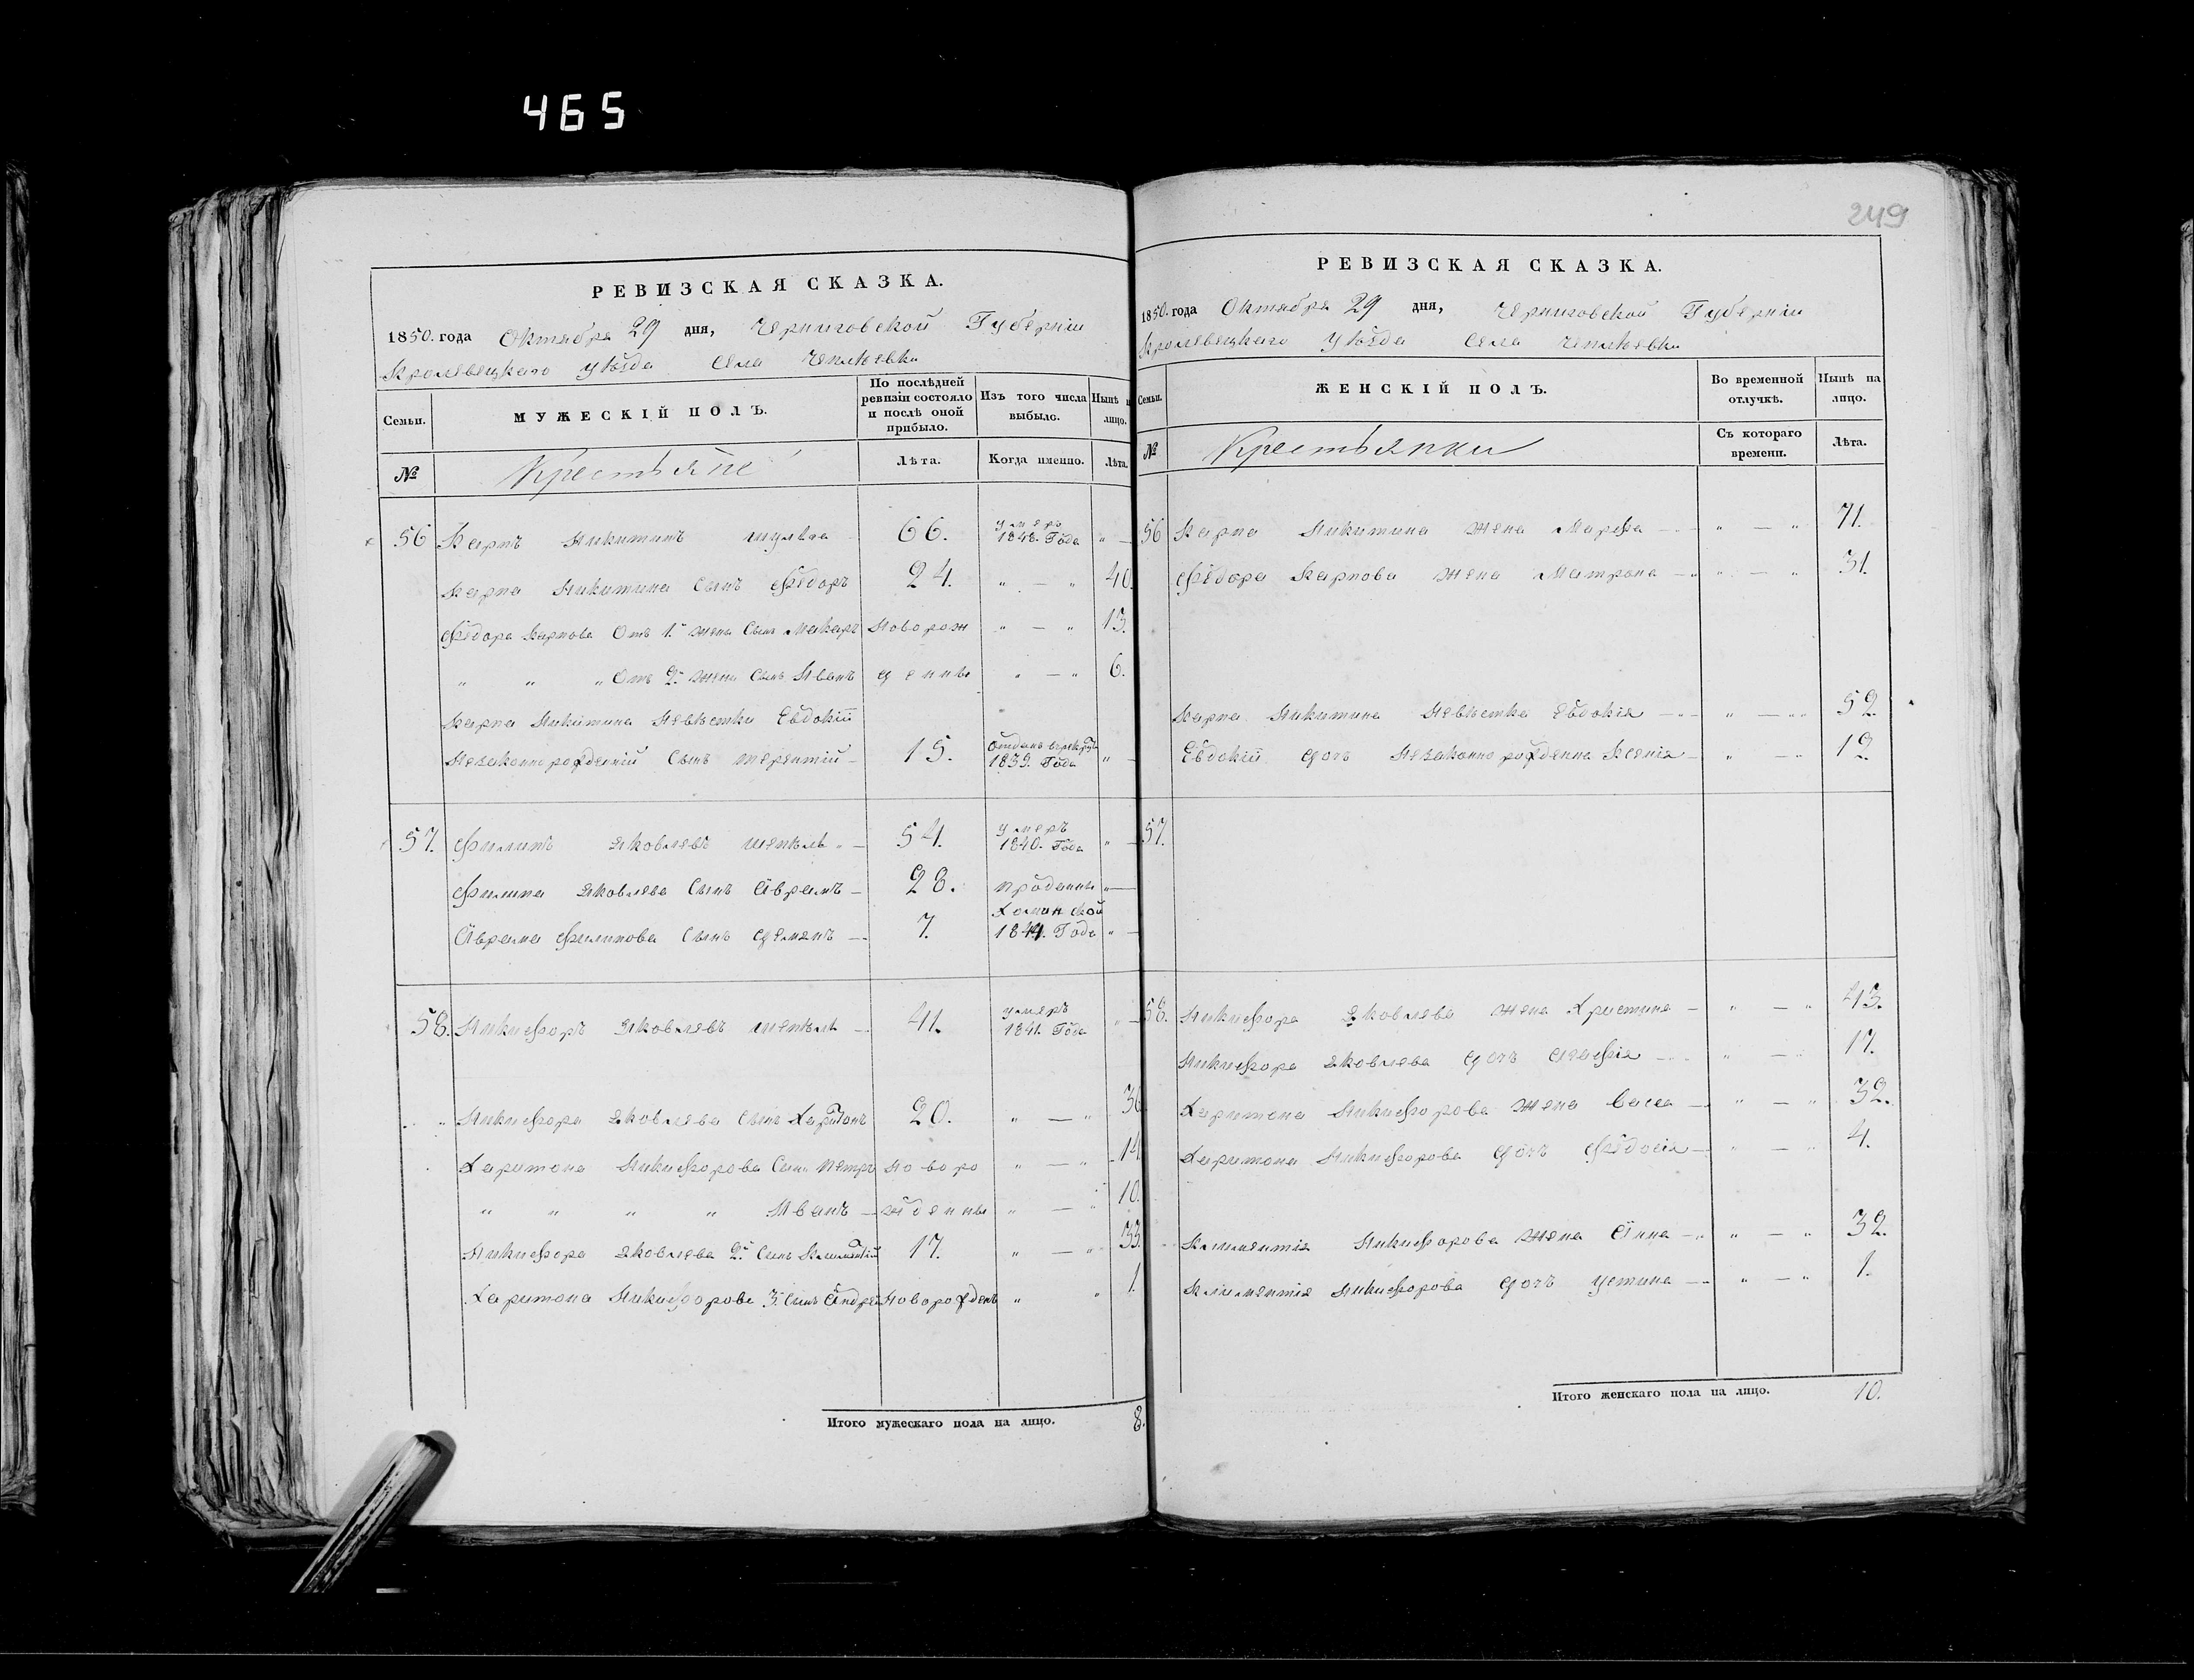 465
249
РЕВИЗСКАЯ СКАЗКА.
1850. года Октября 29 дня, Черниговской Губерніи
Кролевецкаго уѣзда Села Чеплѣевки
Семьи.
МУЖЕСКІЙ ПОЛЪ.
По послѣдней ревизіи состояло и послѣ оной прибыло.
Изъ того числа выбыло.
Нынѣ на лицо.
№
Крестьяне
Лѣта.
Когда именно.
Лѣта.
56 Карпъ Никитинъ 66. умеръ 1848. Года " —
Карпа Никитина Сынъ Фёдоръ 24. " — " 40.
Фёдора Карпова Отъ 1й жены Сынъ Макаръ новорож " — " 13.
" " " Отъ 2й жены Сынъ Иванъ денны " — " 6.
Карпа Никитина Невѣстки Евдокіи
Незаконнорожденній Сынъ Терентій 15. отданъ въ рекруты 1839. Года " —
57. Филипъ Яковлевъ 54. умеръ 1840. Года " —
Филипа Яковлева Сынъ Аврамъ — 28. проданны " —
Аврама Филипова Сынъ Демянъ — 7. 1844. Года " —
58. Никифоръ Яковлевъ — 41. умеръ 1841. Года " —
Никифора Яковлева Сынъ Харитонъ 20. " — " 36
Харитона Никифорова Сынъ Петръ новоро " — " 14
" " " " Иванъ — жденны " — " 10.
Никифора Яковлева 2й Сынъ Климентій 17. " — " 33.
Харитона Никифорова 3. Сынъ Андрей новорожденъ " " 1.
Итого мужескаго пола на лицо. 8.
РЕВИЗСКАЯ СКАЗКА.
1850. года Октября 29 дня, Черниговской Губерніи
Кролевецкаго уѣзда Села Чеплѣевки
Семьи.
ЖЕНСКІЙ ПОЛЪ.
Во временной отлучкѣ.
Нынѣ на лицо.
№
Крестьянки
Съ котораго времени.
Лѣта.
56 Карпа Никитина жена Марфа — " — " 71.
Фёдора Карпова жена Матрона — " — " 31.
Карпа Никитина Невѣстка Евдокія — " — " 52
Евдокіи дочъ Незаконнорожденна Ксенія — " — " 12
57.
58. Никифора Яковлева жена Христина — " — " 43.
Никифора Яковлева дочъ — " — " 17.
Харитона Никифорова жена Васса — " — " 32.
Харитона Никифорова дочъ Фёдосія — " — " 4.
Климентія Никифорова жена Анна — " — " 32.
Климентія Никифорова дочъ Устина — " — " 1.
Итого женскаго пола на лицо. 10.